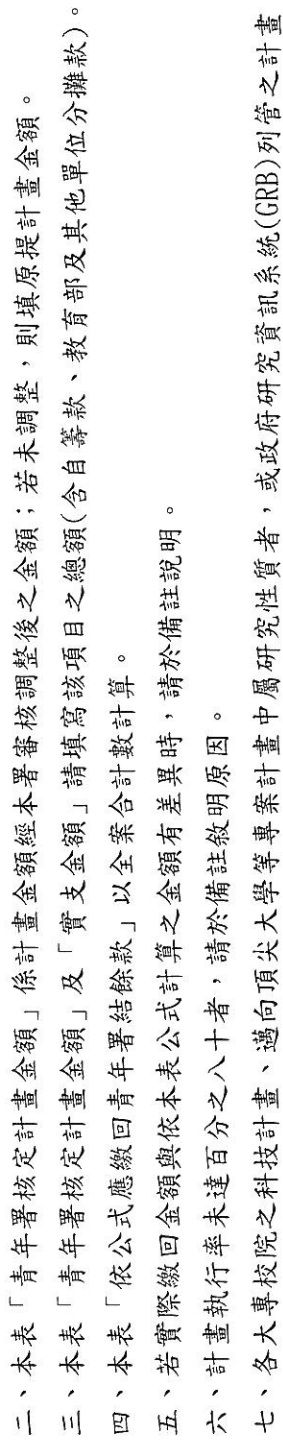 二、本表「青年署核定計畫金額」係計畫金額經本署審核調整後之金額；若未調整，則填原提計畫金額。
三、本表「青年署核定計畫金額」及「實支金額」請填寫該項目之總額(含自籌款、教育部及其他單位分攤款)。
四、本表「依公式應繳回青年署結餘款」以全案合計數計算。
五、若實際繳回金額與依本表公式計算之金額有差異時，請於備註說明。
六、計畫執行率未達百分之八十者，請於備註敘明原因。
七、各大專校院之科技計畫、邁向頂尖大學等專案計畫中屬研究性質者，或政府研究資訊系統(GRB)列管之計畫